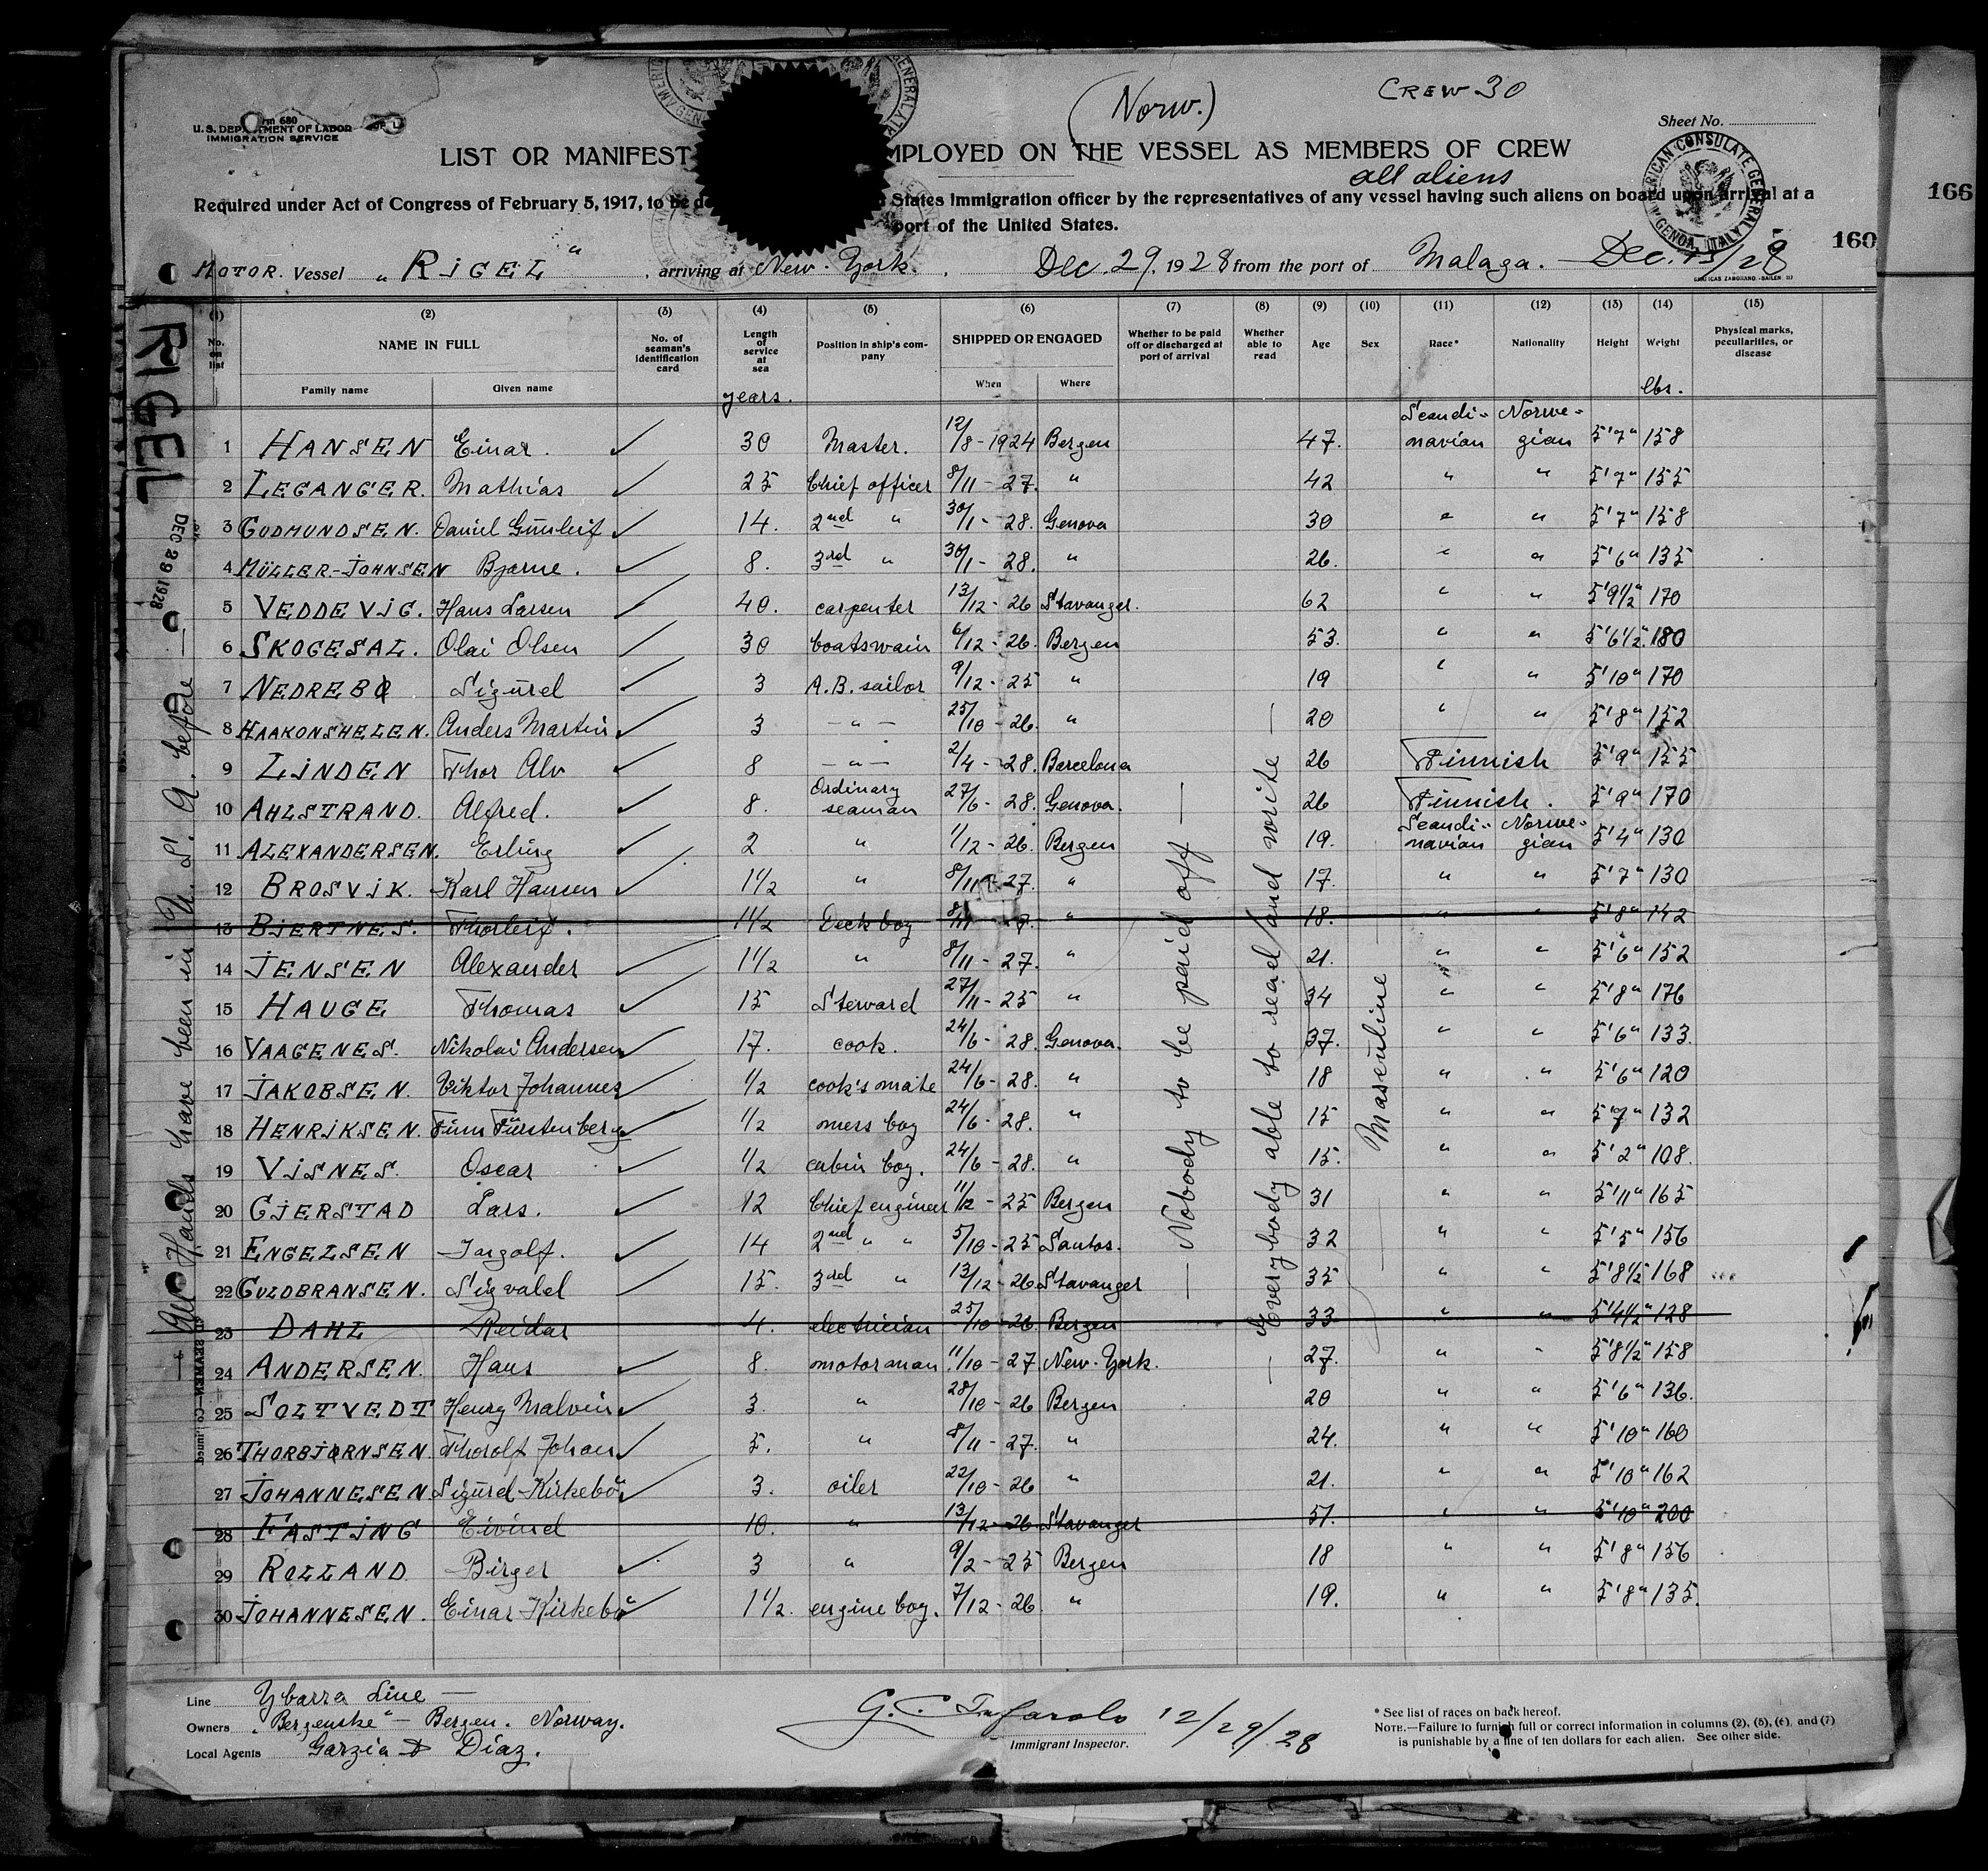 (Norw.)
CREW 30
Form 680
U.S. DEPARTMENT OF LABOR
IMMIGRATION SERVICE
Sheet No.
LIST OR MANIFEST EMPLOYED ON THE VESSEL AS MEMBERS OF CREW
all aliens
AMERICAN CONSULATE GENERAL
GENOA, ITALY
166
Required under Act of Congress of February 5, 1917, to be States immigration officer by the representatives of any vessel having such aliens on board upon arrival at a
port of the United States.
160
MOTOR. Vessel "RIGEL" , arriving at New-York. Dec. 29. 1928 from the port of Malaga. Dec. 13/28
(1) (2) (3) (4) (5) (6) (7) (8) (9) (10) (11) (12) (13) (14) (15)
No. on list NAME IN FULL No. of seaman's identification card Length of service at sea Position in ship's company SHIPPED OR ENGAGED Whether to be paid off or discharged at port of arrival Whether able to read Age Sex Race* Nationality Height Weight Physical marks, peculiarities, or disease
Family name Given name When Where
years. lbs.
1 HANSEN Einar. 30 Master. 12/8-1924 Bergen 47. Scandinavian Norwegian 5'7" 158
2 LEGANGER. Mathias 25 Chief officer 8/11-27. " 42 " " 5'7" 155
3 GUDMUNDSEN. Daniel Gunleif 14. 2nd " 30/1-28. Genova 30 " " 5'7" 158
4 MÜLLER-JOHNSEN Bjarne. 8. 3rd " 30/1-28. " 26. " " 5'6" 135
5 VEDDEVIG. Hans Larsen 40. carpenter 13/12-26 Stavanger. 62 " " 5'9½" 170
6 SKOGESAL. Olai Olsen 30 boatswain 6/12-26. Bergen 53. " " 5'6½" 180
7 NEDREBØ Sigurd 3 A.B. sailor 9/12-25 " 19 " " 5'10" 170
8 HAAKONSHELEN. Anders Martin 3 -"- 25/10-26. " 20 " " 5'8" 152
9 LINDEN Thor Alv 8 -"- 2/4-28. Barcelona 26 Finnish 5'9" 155
10 AHLSTRAND. Alfred. 8. Ordinary seaman 27/6-28. Genova. 26 Finnish. 5'9" 170
11 ALEXANDERSEN. Erling 2 " 1/12-26. Bergen 19. Scandinavian Norwegian 5'4" 130
12 BROSVIK. Karl Hansen 1½ " 8/11-27. " 17. " " 5'7" 130
13 BJERTNES. Thorleif. 1½ Deck boy 8/11-27. " 18. " " 5'8" 142
14 JENSEN Alexander 1½ " 8/11-27. " 21. " " 5'6" 152
15 HAUGE Thomas 15 Steward 27/11-25 " 34 " " 5'8" 176
16 VAAGENES. Nikolai Andersen 17. cook. 24/6-28. Genova. 37. " " 5'6" 133.
17 JAKOBSEN. Viktor Johannes ½ cook's maite 24/6-28. " 18 " " 5'6" 120
18 HENRIKSEN. Finn Fürstenberg ½ mess boy 24/6-28. " 15 " " 5'7" 132
19 VISNES. Oscar ½ cabin boy. 24/6-28. " 15. " " 5'2" 108.
20 GJERSTAD Lars. 12 Chief engineer 11/12-25 Bergen 31 " " 5'11" 165
21 ENGELSEN Ingolf. 14 2nd " " 5/10-25 Santos. 32 " " 5'5" 156
22 GULDBRANSEN. Sigvald 15. 3rd " 13/12-26 Stavanger 35 " " 5'8½" 168
23 DAHL Reidar 4. electrician 25/10-26. Bergen 33 " " 5'4½" 128
24 ANDERSEN. Hans 8. motorman. 11/10-27 New-York. 27. " " 5'8½" 158
25 SOLTVEDT Henry Malvin 3. " 28/10-26 Bergen 20 " " 5'6" 136.
26 THORBJØRNSEN. Thorolf Johan 5. " 8/11-27. " 24. " " 5'10" 160
27 JOHANNESEN Sigurd Kirkebö 3. oiler 22/10-26 " 21. " " 5'10" 162
28 FASTING Eivind 10. " 13/12-26 Stavanger 51. " " 5'10" 200
29 ROLLAND Birger 3 " 9/2-25 Bergen 18 " " 5'8" 156
30 JOHANNESEN. Einar Kirkebö 1½. engine boy. 7/12-26. " 19. " " 5'8" 135.
— Nobody to be paid off —
— Everybody able to read and write —
— Masculine —
RIGEL
DEC 29 1928
All Hands have been in U. S. A. before —
Line Ybarra Line —
Owners "Bergenske" — Bergen. Norway.
Local Agents Garzia & Diaz.
12/29/28
Immigrant Inspector.
* See list of races on back hereof.
NOTE.—Failure to furnish full or correct information in columns (2), (5), (6), and (7)
is punishable by a fine of ten dollars for each alien. See other side.